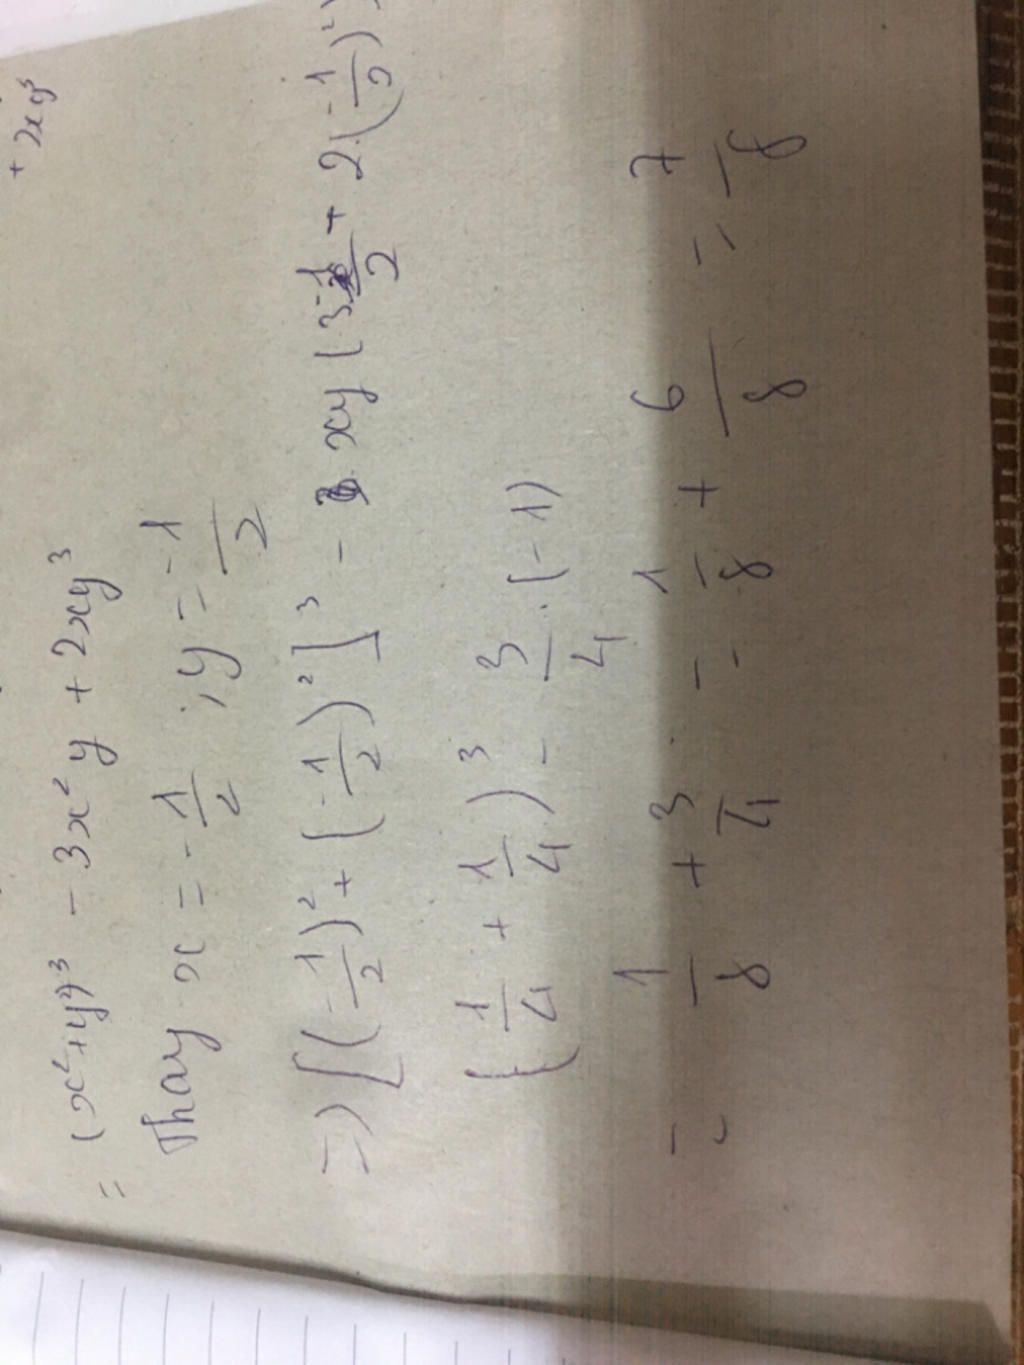 + 2xy³
= (x²+y²)³ - 3x²y + 2xy³
Thay x = -1/2 ; y = -1/2
=> [(-1/2)² + (-1/2)²]³ - xy (3.-1/2 + 2.(-1/2)²)
(1/4 + 1/4)³ - 3/4 . (-1)
= 1/8 + 3/4 = 1/8 + 6/8 = 7/8